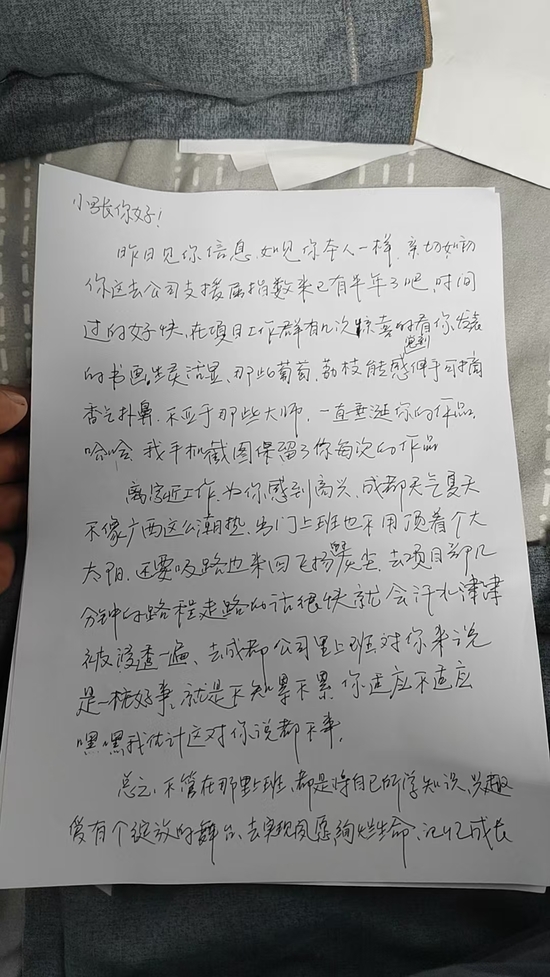 小张你好！
昨日见你信息，如见你本人一样，亲切如初
你这去公司支援 指数来已有半年了吧，时间
过的好快，在项目工作群有几次惊喜的看你发表
的书画，灵活 ，那些葡萄、荔枝能感觉到伸手可摘
香气扑鼻，不亚于那些大师，一直垂涎你的作品，
哈哈，我手机截图保留了你每次的作品
离家近工作，为你感到高兴，成都天气夏天
不像广西这么潮热，出门上班也不用顶着个大
太阳，还要吸路边来回飞扬 灰尘，去项目部几
分钟的路程走路的话很快就会汗水津津
被浸透一遍、去成都公司里上班对你来说
是一桩好事，就是不知累不累，你适应不适应
嘿嘿我估计这对你说都不事，
总之，不管在那里上班，都是将自己所学知识、兴趣
爱有个绽放的舞台、去实现夙愿，绚烂生命、记忆成长